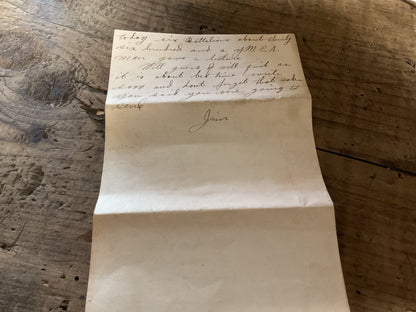 today, six Battalions about thirty
six hundred and a Y.M.C.A.
man gave a lecture.
Well guess I will quit as
it is about bed time, write
soon and dont forget that cake
you said you were going to
send
Jim